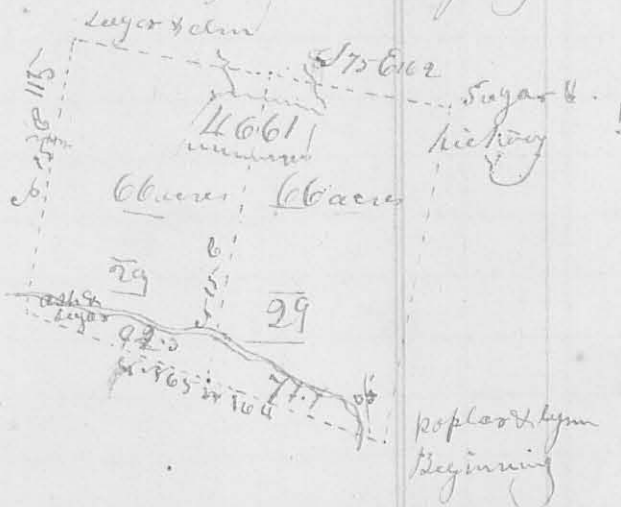 Sugar & elm
S 75 E 162
Sugar &
hickory
4661
66 acres
66 acres
29
29
ash &
sugar
92.5
77.7
poplar & lynn
Beginning